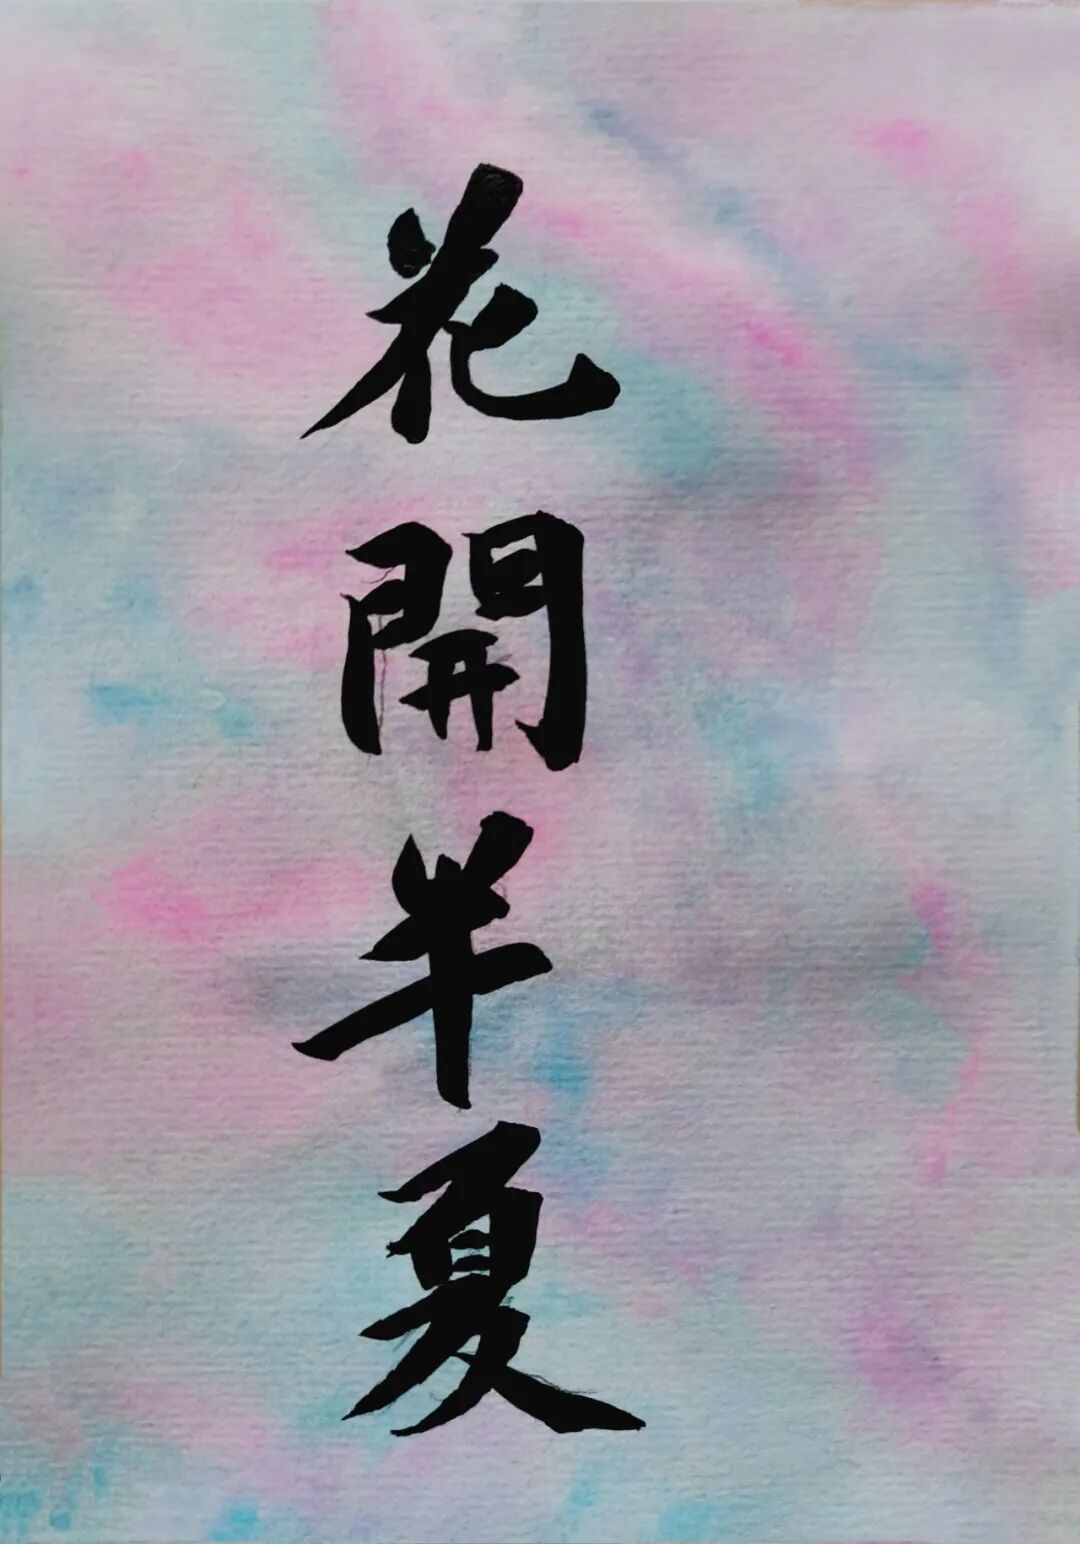 花開半夏